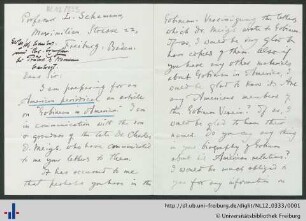 Professor L. Schemann
Maximilian Strasse 22,
Freiburg - Baden.
Dear Sir:
I am preparing for an
American periodical an article
on "Gobineau in America". I am
in communication with the son
or grandson of the late Dr. Charles
D. Meigs who have communicated
to me your letters to them.
It has occurred to me
that perhaps you have in the
Gobineau Vereinigung the letters
which Dr. Meigs wrote to Gobineau
If so, I would be very glad to
have copies of them. Also if
you have any other materials
about Gobineau in America, I
would be glad to know it. Are
any Americans members of
the Gobineau Verein? If so, I
would be glad to have their
names. Do you say any thing
in your biography of Gobineau
about his American relations?
I would be most obliged to
you for any information
http://dl.ub.uni-freiburg.de/diglit/NL12_0333/0001
© Universitätsbibliothek Freiburg